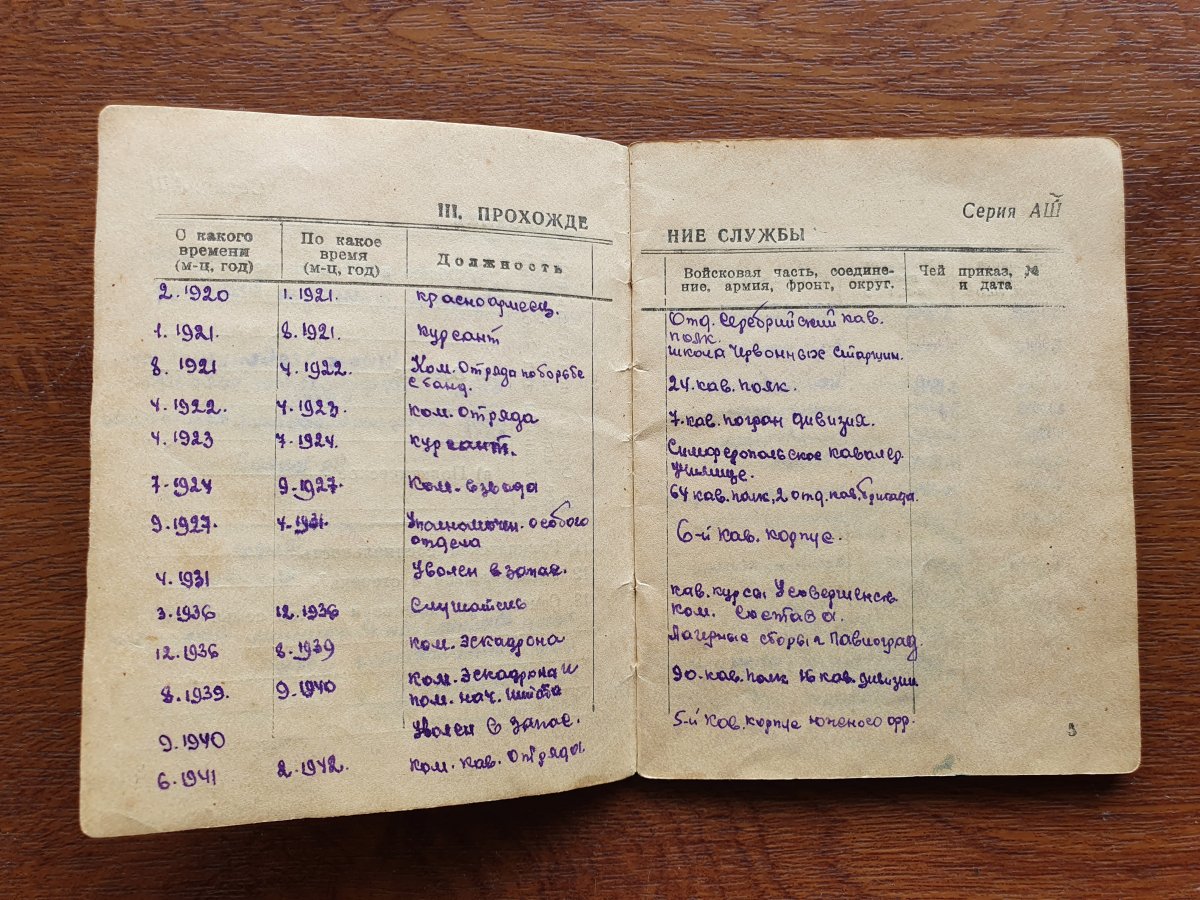 III. ПРОХОЖДЕ
С какого времени (м-ц, год)
По какое время (м-ц, год)
Должность
2.1920 1.1921. красноармеец.
1.1921. 8.1921. курсант
8.1921 4.1922. Ком. Отряда по борьбе
с банд.
4.1922. 4.1923. ком. отряда
4.1923 7.1924. курсант.
7.1924 9.1927. ком. взвода
9.1927. 4.1931. Уполномочен. особого
отдела
4.1931 Уволен в запас.
3.1936 12.1936 Слушатель
12.1936 8.1939 ком. эскадрона
8.1939. 9.1940 ком. эскадрона и
пом. нач. штаба
9.1940 Уволен в запас.
6.1941 2.1942. ком. кав. отряда.
Серия АШ
НИЕ СЛУЖБЫ
Войсковая часть, соедине-
ние, армия, фронт, округ.
Чей приказ, №
и дата
Отд. кав.
полк.
школа Червонных Старшин.
24. кав. полк.
7. кав. погран дивизия.
Симферопольское кавалер.
училище.
64 кав. полк, 2 отд. кав. бригада.
6-й кав. корпус.
кав. курсы Усовершенств
ком. состава.
Лагерные сборы г Павлоград
90. кав. полк 16 кав. дивизии
5-й кав. корпус южного фр.
3